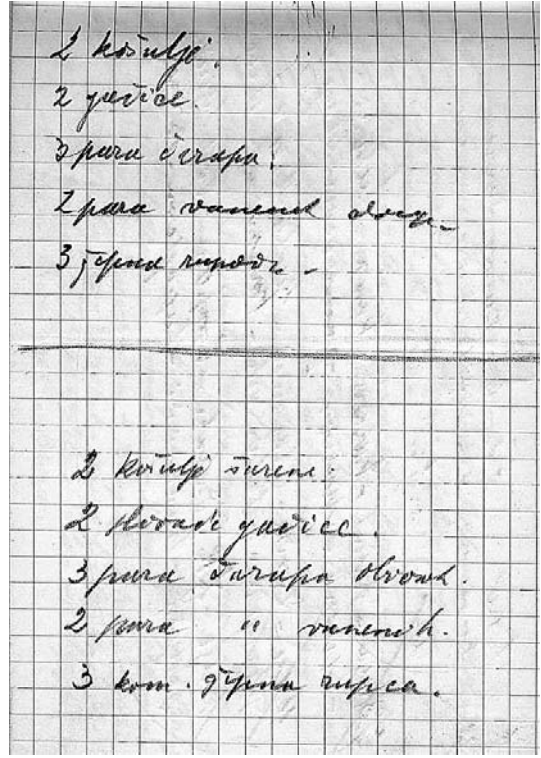 2 košulje.
2 gaćice.
3 para čarapa.
2 para vunenih
3 džepna
2 košulje šarene.
2 gaćice.
3 para čarapa
2 para " vunenih.
3 kom. džepna rupca.